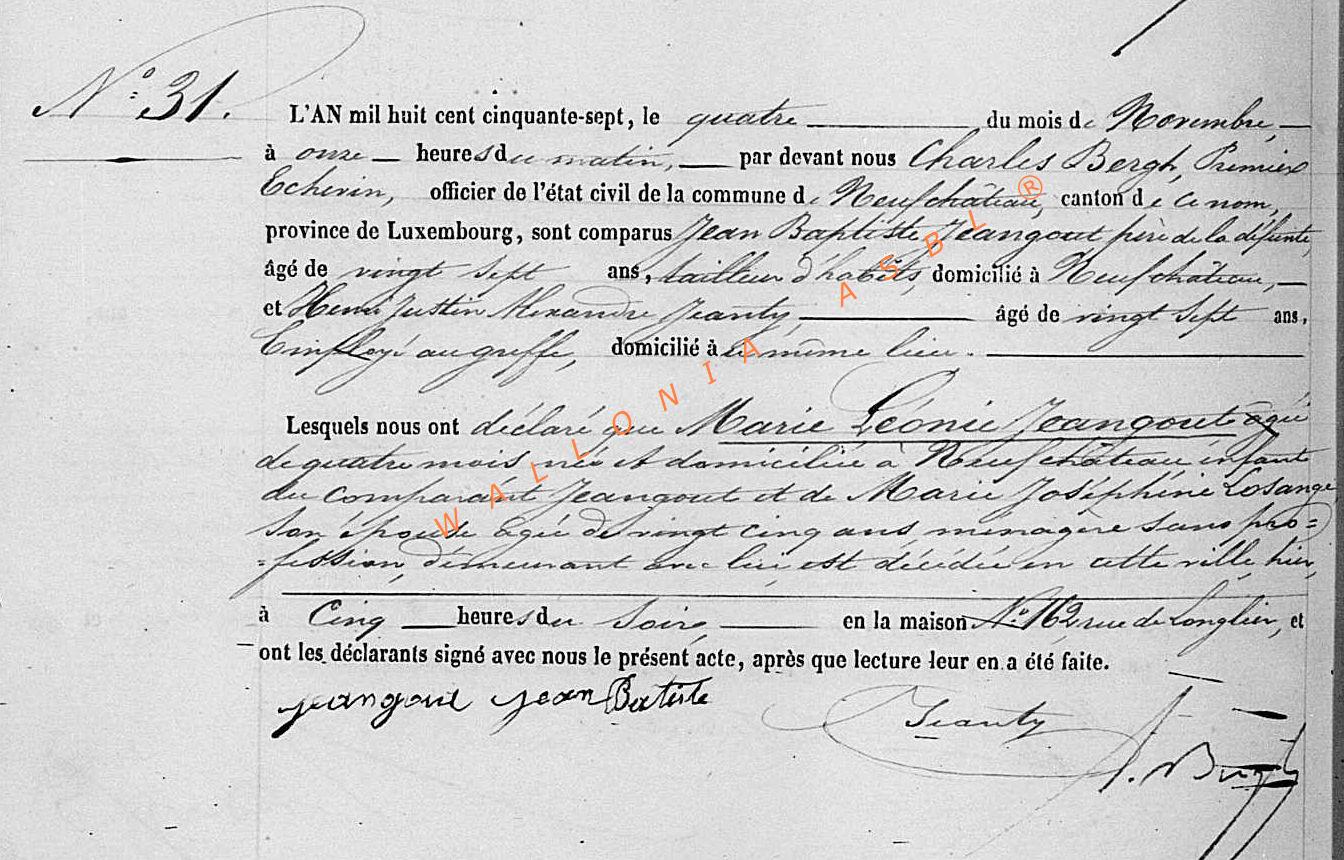 N° 31.
L'AN mil huit cent cinquante-sept, le quatre du mois de Novembre,
à onze heures du matin, par devant nous Charles Bergh, Premier
Echevin, officier de l'état civil de la commune de Neufchâteau, canton de ce nom,
province de Luxembourg, sont comparus Jean Baptiste Jeangout père de la défunte,
âgé de vingt sept ans, tailleur d'habits, domicilié à Neufchâteau,
et Henri Justin Alexandre Jeanty, âgé de vingt sept ans,
Employé au greffe, domicilié à le même lieu.
Lesquels nous ont déclaré que Marie Léonie Jeangout agée
de quatre mois née et domiciliée à Neufchâteau enfant
du comparant Jeangout et de Marie Joséphine Losange
son épouse agée de vingt cinq ans, ménagère sans pro=
=fession, demeurant avec lui, est décédée en cette ville hier,
à Cinq heures du Soir, en la maison N° 162 rue de Longlier, et
ont les déclarants signé avec nous le présent acte, après que lecture leur en a été faite.
Jeangout Jean Batiste
Jeanty
WALLONIA ASBL ®